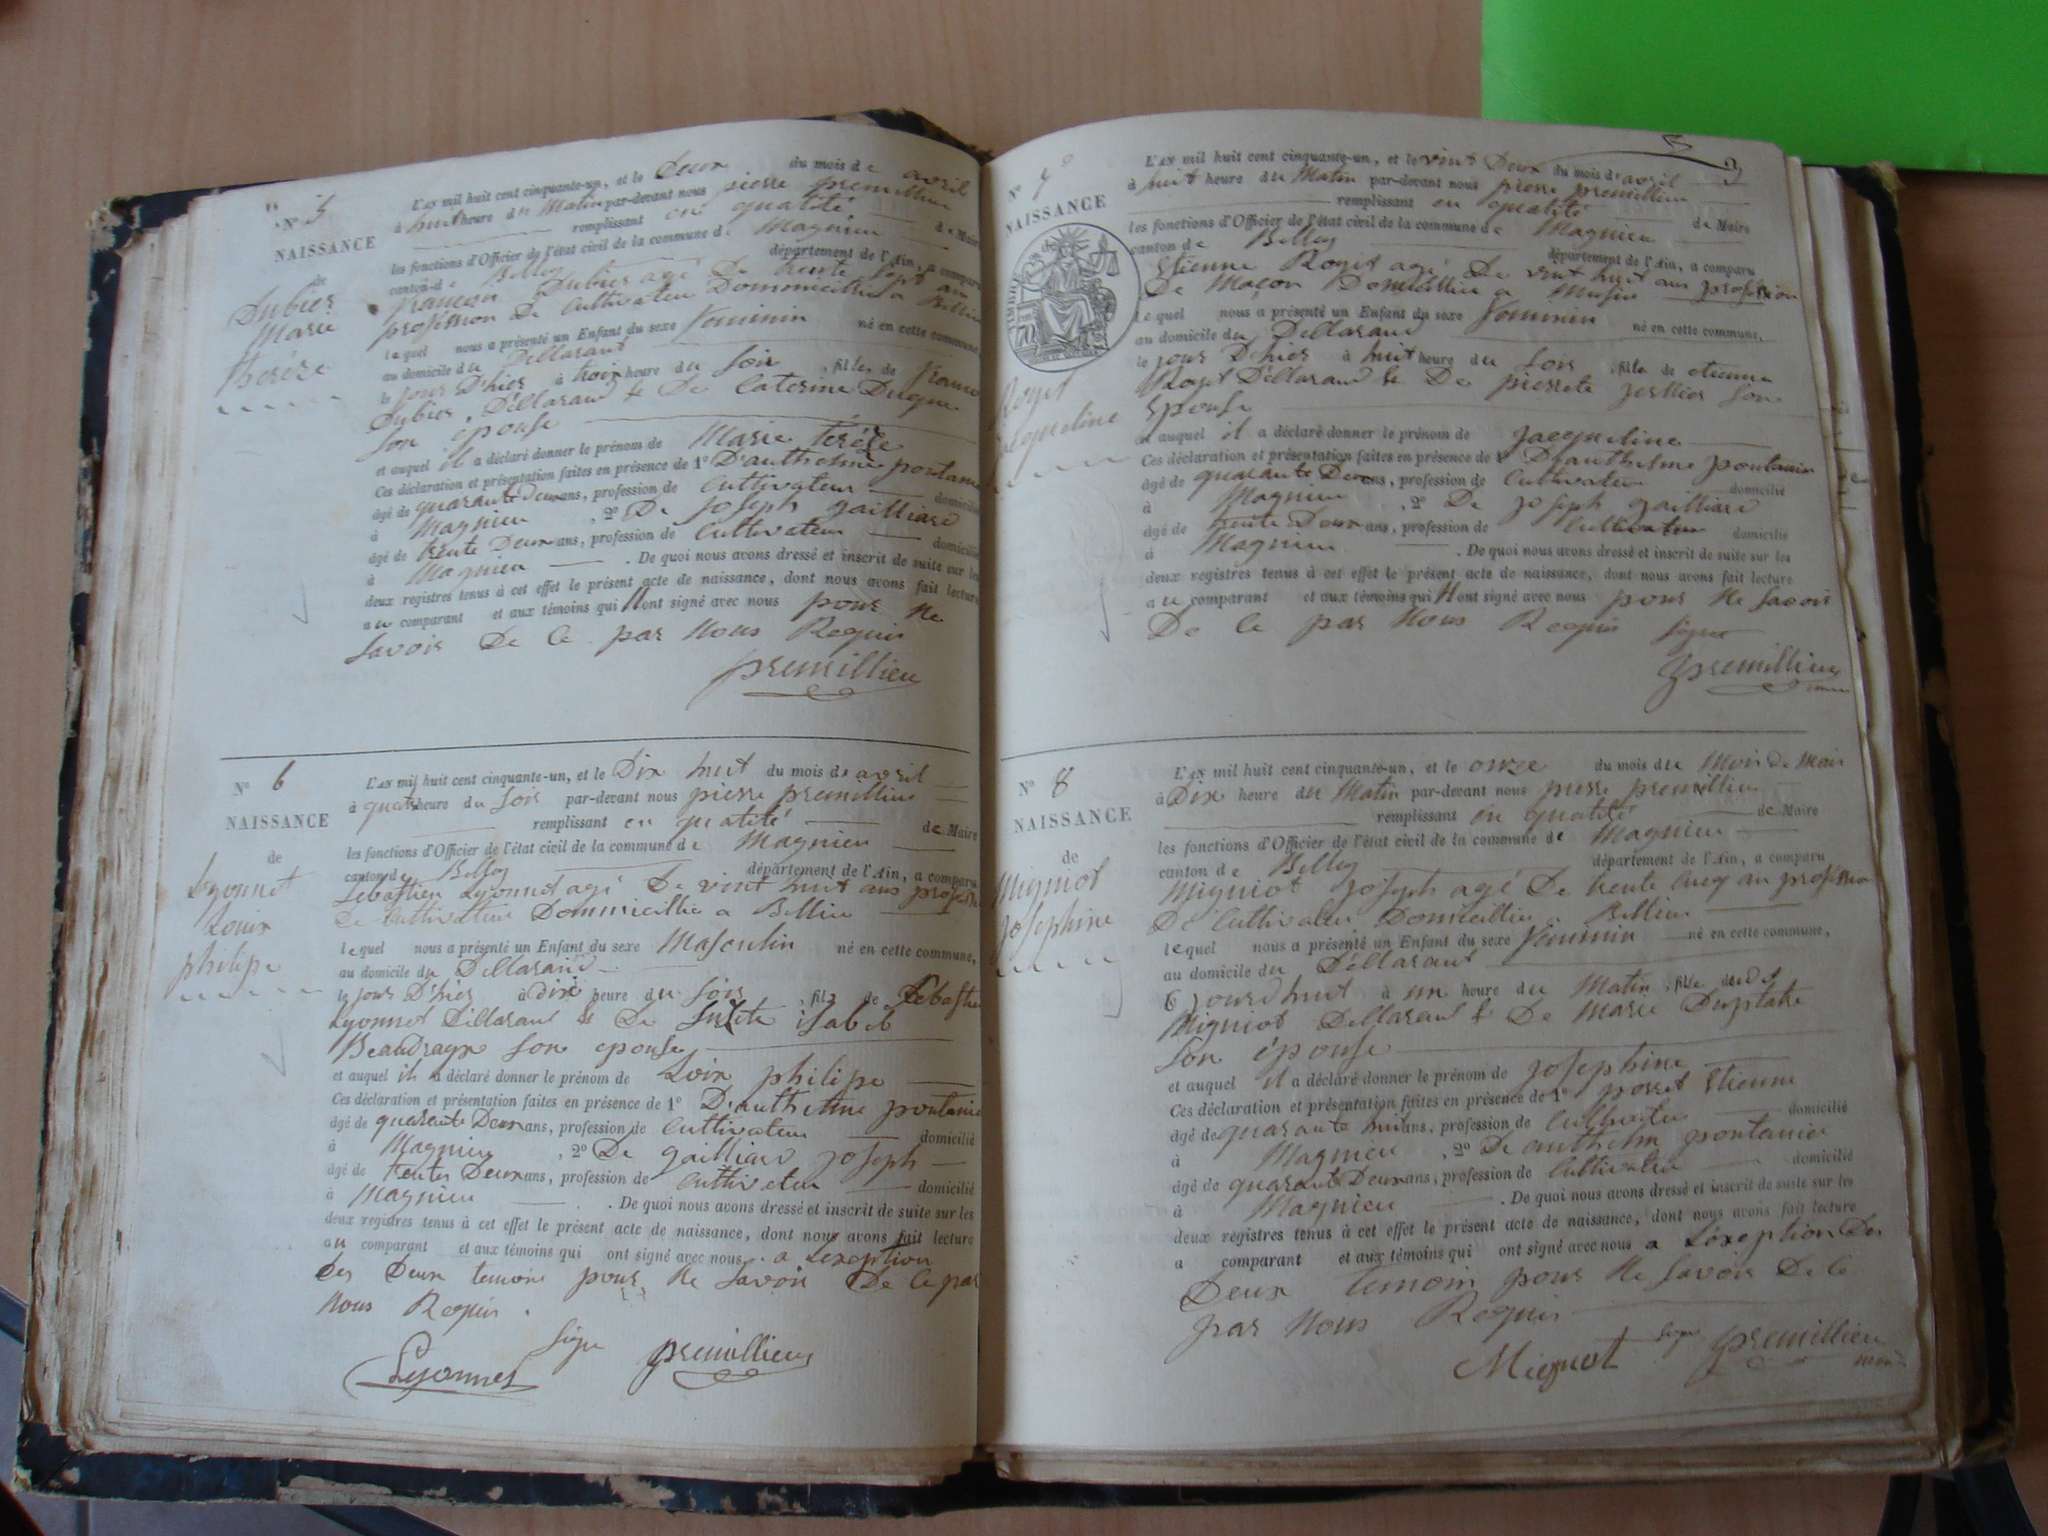 N° 5
NAISSANCE
de
Dubier
Marie
therèze
L'AN mil huit cent cinquante-un, et le Deux du mois de avril
à huit heure du Matin par-devant nous pierre premillieu
remplissant en qualité de Maire
les fonctions d'Officier de l'état civil de la commune de Magnieu
canton de Belley département de l'Ain, a comparu
francois Dubier agé De trente Sept an
profession De Cultivateur Domomicillié a Billieu
lequel nous a présenté un Enfant du sexe feminin né en cette commune,
au domicile du Dellarant
le jour D'hier à trois heure du Soir, fille de francois
Dubier, Déllarant & De Caterine Dugne
Son épouse
et auquel il a déclaré donner le prénom de Marie terèze
Ces déclaration et présentation faites en présence de 1° D'anthelme pontanie
âgé de quarante deux ans, profession de Cultivateur domicilié
à Magnieu, 2° De joseph gailliard
âgé de trente Deux ans, profession de Cultivateur domicilié
à Magnieu. De quoi nous avons dressé et inscrit de suite sur les
deux registres tenus à cet effet le présent acte de naissance, dont nous avons fait lecture
au comparant et aux témoins qui Nont signé avec nous pour Ne
Savoir De Ce par Nous Requis
premillieu
N° 6
NAISSANCE
de
Lyonnet
Louix
philipe
L'AN mil huit cent cinquante-un, et le Dix huit du mois de avril
à quatre heure du Soir par-devant nous pierre premillieu
remplissant en qualité de Maire
les fonctions d'Officier de l'état civil de la commune de Magnieu
canton de Belley département de l'Ain, a comparu
Sebastien Lyonnet agé De vint huit ans profession
De Cultivateur Dommicillié a Billieu
lequel nous a présenté un Enfant du sexe Masculin né en cette commune,
au domicile du Dellarant
le jour D'hier à dix heure du Soir, fils de Sebastien
Lyonnet Dillarant & De Suzete isabel
Beaudragx Son epouse
et auquel il a déclaré donner le prénom de Loix philipe
Ces déclaration et présentation faites en présence de 1° D'anthelme pontanie
âgé de quarante Deux ans, profession de Cultivateur domicilié
à Magnieu, 2° De gailliard joseph
âgé de trente Deux ans, profession de Cultivateur domicilié
à Magnieu. De quoi nous avons dressé et inscrit de suite sur les
deux registres tenus à cet effet le présent acte de naissance, dont nous avons fait lecture
au comparant et aux témoins qui ont signé avec nous a L'exeption
Des Deux temoins pour Ne Savoir De Ce par
Nous Requis.
Signe
Lyonnet premillieu
3
N° 7
NAISSANCE
Roget
jacqueline
L'AN mil huit cent cinquante-un, et le vint Deux du mois d'avril
à huit heure du Matin par-devant nous pierre premillieu
remplissant en qualité de Maire
les fonctions d'Officier de l'état civil de la commune de Magnieu
canton de Belley département de l'Ain, a comparu
Etienne Roget agé De vint huit ans profession
De Maçon Domicillié a Musin
lequel nous a présenté un Enfant du sexe feminin né en cette commune,
au domicile du Dellarant
le jour D'hier à huit heure du Soir, fille de etienne
Roget Déllarant & De pierrete Son
Epouse
et auquel il a déclaré donner le prénom de jacqueline
Ces déclaration et présentation faites en présence de 1° D'anthelme pontanie
âgé de quarante Deux ans, profession de Cultivateur domicilié
à Magnieu, 2° De joseph gailliard
âgé de trente Deux ans, profession de Cultivateur domicilié
à Magnieu. De quoi nous avons dressé et inscrit de suite sur les
deux registres tenus à cet effet le présent acte de naissance, dont nous avons fait lecture
au comparant et aux témoins qui Nont signé avec nous pour Ne Savoir
De Ce par Nous Requis Signer
premillieu
N° 8
NAISSANCE
de
Migniot
josephine
L'AN mil huit cent cinquante-un, et le onze du mois du Mois De Mai
à Dix heure du Matin par-devant nous pierre premillieu
remplissant en qualité de Maire
les fonctions d'Officier de l'état civil de la commune de Magnieu
canton de Belley département de l'Ain, a comparu
Migniot joseph agé De trente Cinq an profession
De Cultivateur Domicillié a Billieu
lequel nous a présenté un Enfant du sexe feminin né en cette commune,
au domicile du Déllarant
jourd'huit à un heure du Matin, fille
Migniot Dellarant & De Marie
Son épouse
et auquel il a déclaré donner le prénom de josephine
Ces déclaration et présentation faites en présence de 1° Etienne
âgé de quarante huit ans, profession de Cultivateur domicilié
à Magnieu, 2° De anthelm pontanier
âgé de quarante Deux ans, profession de Cultivateur domicilié
à Magnieu. De quoi nous avons dressé et inscrit de suite sur les
deux registres tenus à cet effet le présent acte de naissance, dont nous avons fait lecture
a comparant et aux témoins qui ont signé avec nous a L'éxeption Des
Deux temoin pour Ne Savoir De Ce
par Nous Requis
Migniot premillieu